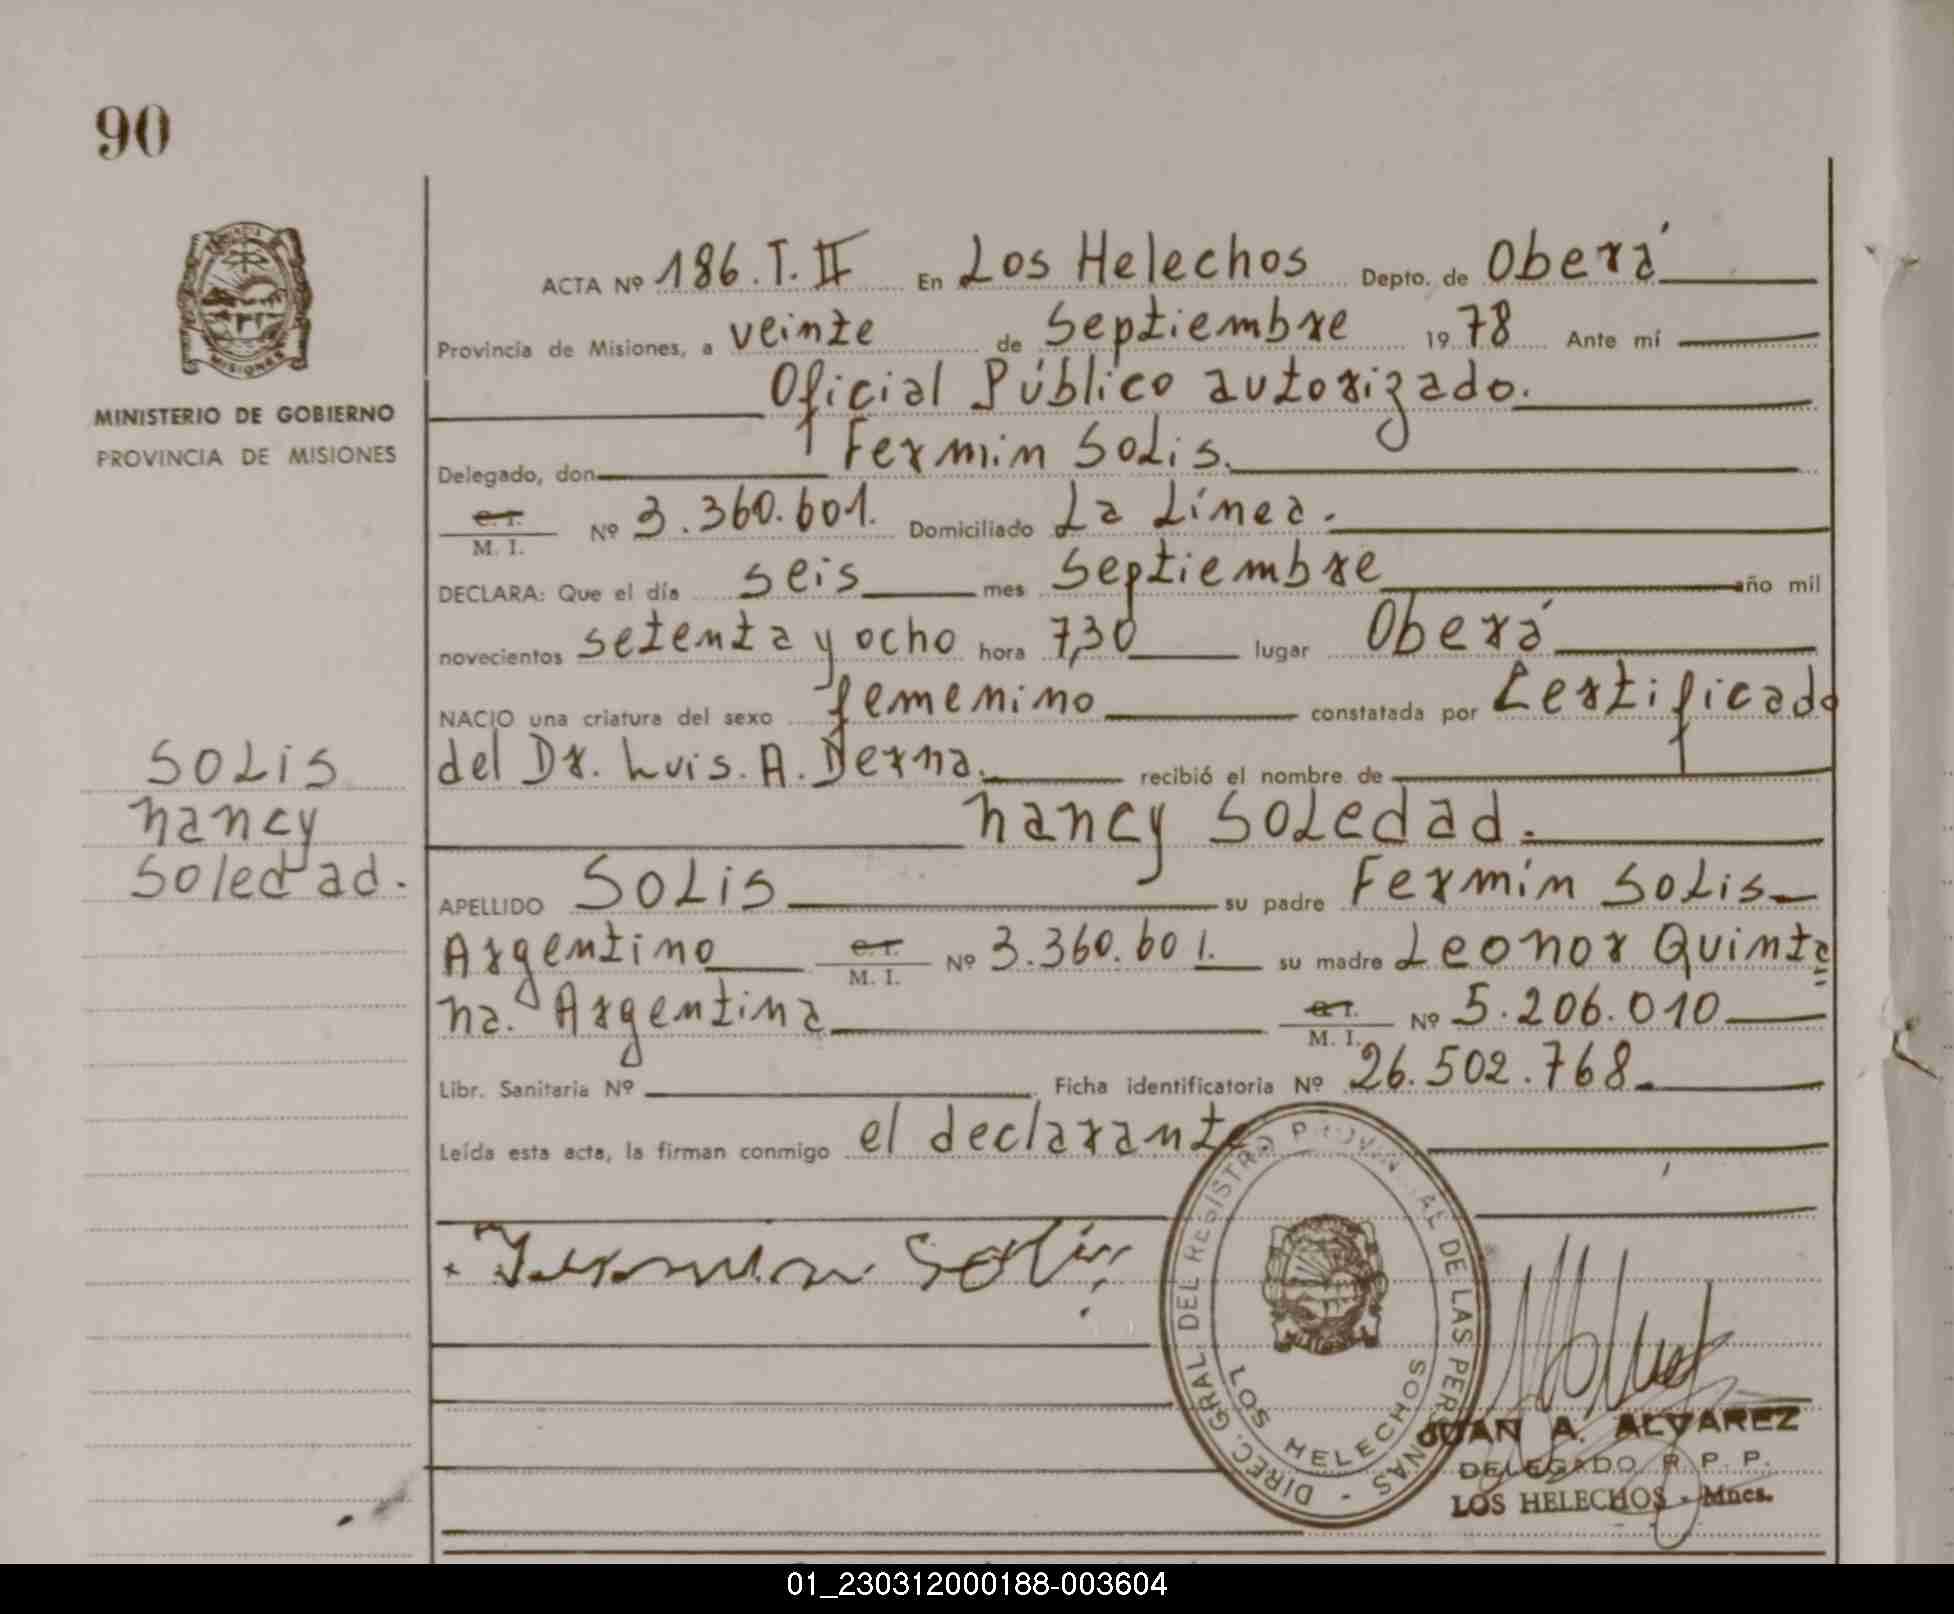 90
MISIONES
MINISTERIO DE GOBIERNO
PROVINCIA DE MISIONES
SOLIS
Nancy
Soledad.
ACTA Nº 186.T.II En Los Helechos Depto. de Oberá
Provincia de Misiones, a veinte de Septiembre 1978 Ante mí
Oficial Público autorizado.
Delegado, don Fermin Solis.
C. I.
M. I. Nº 3.360.601. Domiciliado La Línea.
DECLARA: Que el día seis mes Septiembre año mil
novecientos setenta y ocho hora 7,30 lugar Oberá
NACIO una criatura del sexo femenino constatada por Certificado
del Dr. Luis. A. Derna. recibió el nombre de
Nancy Soledad.
APELLIDO SOLIS su padre Fermín Solis
Argentino C. I.
M. I. Nº 3.360.601. su madre Leonor Quinta
na. Argentina C. I.
M. I. Nº 5.206.010
Libr. Sanitaria Nº Ficha identificatoria Nº 26.502.768.
Leída esta acta, la firman conmigo el declarante
Fermin Solis
DIREC. GRAL. DEL REGISTRO PROVINCIAL DE LAS PERSONAS -
LOS HELECHOS
JUAN A. ALVAREZ
DELEGADO R. P. P.
LOS HELECHOS - Mnes.
01_230312000188-003604